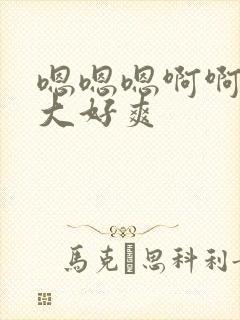 嗯嗯嗯啊啊
大好爽
馬克思科利